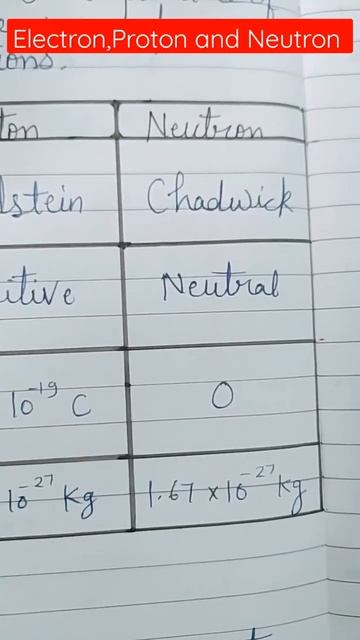 Electron,Proton and Neutron
ons.
ton Neutron
lstein Chadwick
itive Neutral
10⁻¹⁹ C 0
10⁻²⁷ Kg 1.67 x 10⁻²⁷ kg